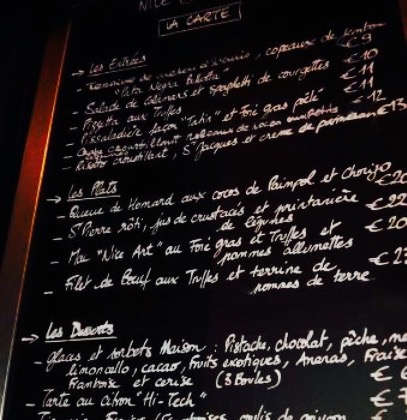 NICE
LA CARTE
→ Les Entrées
- Terrine de , copeaux de jambon
"Pata Negra Bellota" €9
- Salade de Calamars et Spaghetti de courgettes €10
- Pizzetta aux Truffes €11
- Pissaladière façon "Tatin" et Foie gras poêlé €11
€12
- Risotto croustillant, St Jacques et crème de parmesan €13
→ Les Plats
- Queue de Homard aux cocos de Paimpol et Chorizo €20
- St Pierre rôti, jus de crustacés et printanière
de légumes €22
- Mac "Nice Art" au Foie gras et Truffes et
pommes allumettes €20
- Filet de Boeuf aux Truffes et terrine de
pommes de terre €23
→ Les Desserts
- glaces et sorbets Maison : Pistache, chocolat, pêche,
limoncello, cacao, fruits exotiques, Ananas, Fraise
Framboise et cerise (3 Boules) €6
- Tarte au citron "Hi-Tech" €7
coulis de poivron